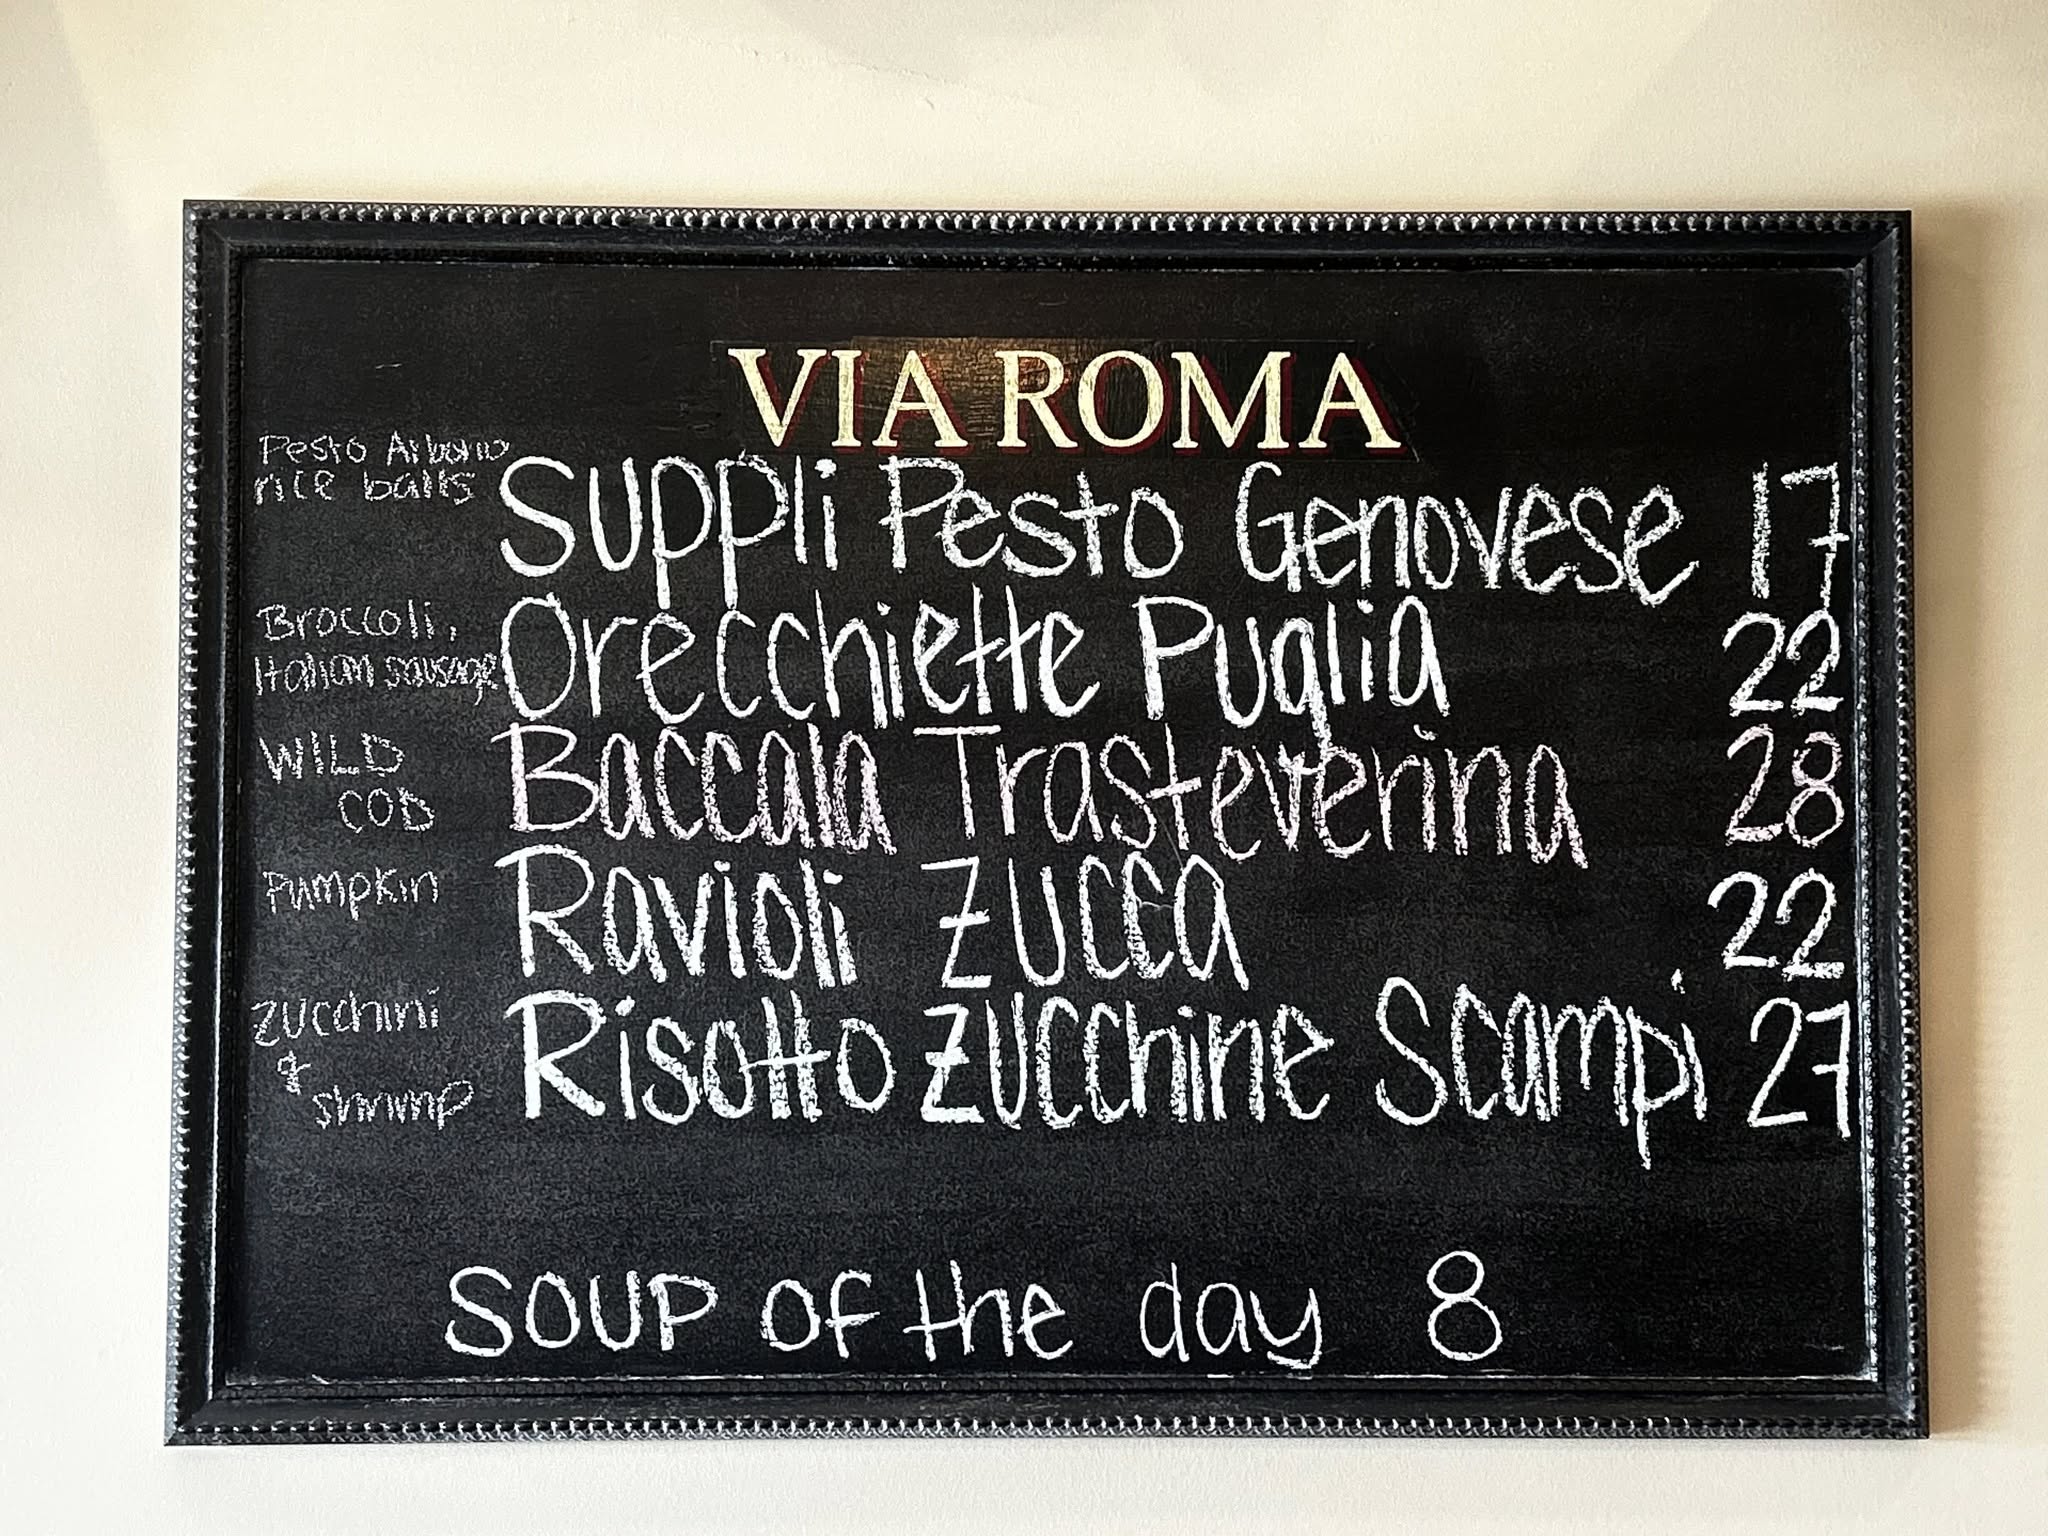 VIA ROMA
Pesto Arborio
rice balls
Suppli Pesto Genovese 17
Broccoli,
Italian sausage
Orecchiette Puglia 22
WILD
COD
Baccala Trasteverina 28
Pumpkin
Ravioli Zucca 22
Zucchini
&
shrimp
Risotto Zucchine Scampi 27
SOUP of the day 8